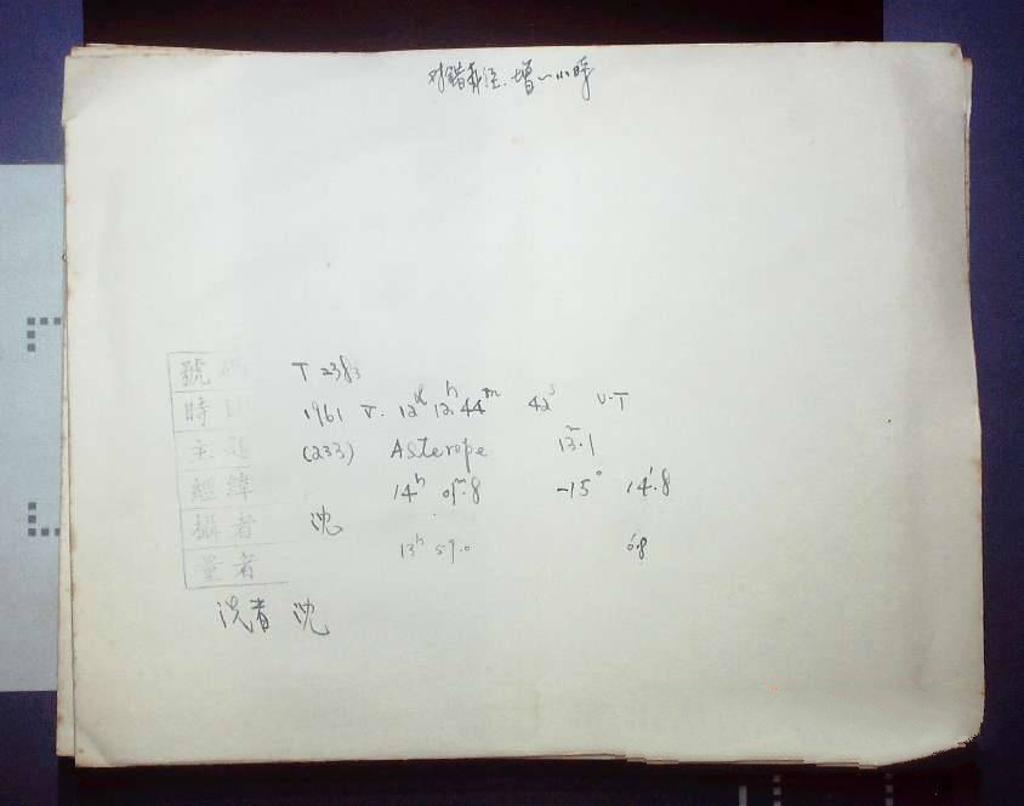 对错 增一小时
號碼 T 2383
時間 1961 V. 12ᵈ 12ʰ 44ᵐ 42ˢ U.T
主題 (233) Asterope 13ᵐ.1
經緯 14ʰ 01ᵐ.8 -15° 14'.8
攝者 沈
13ʰ 59.0 0'.8
量者
洗者 沈